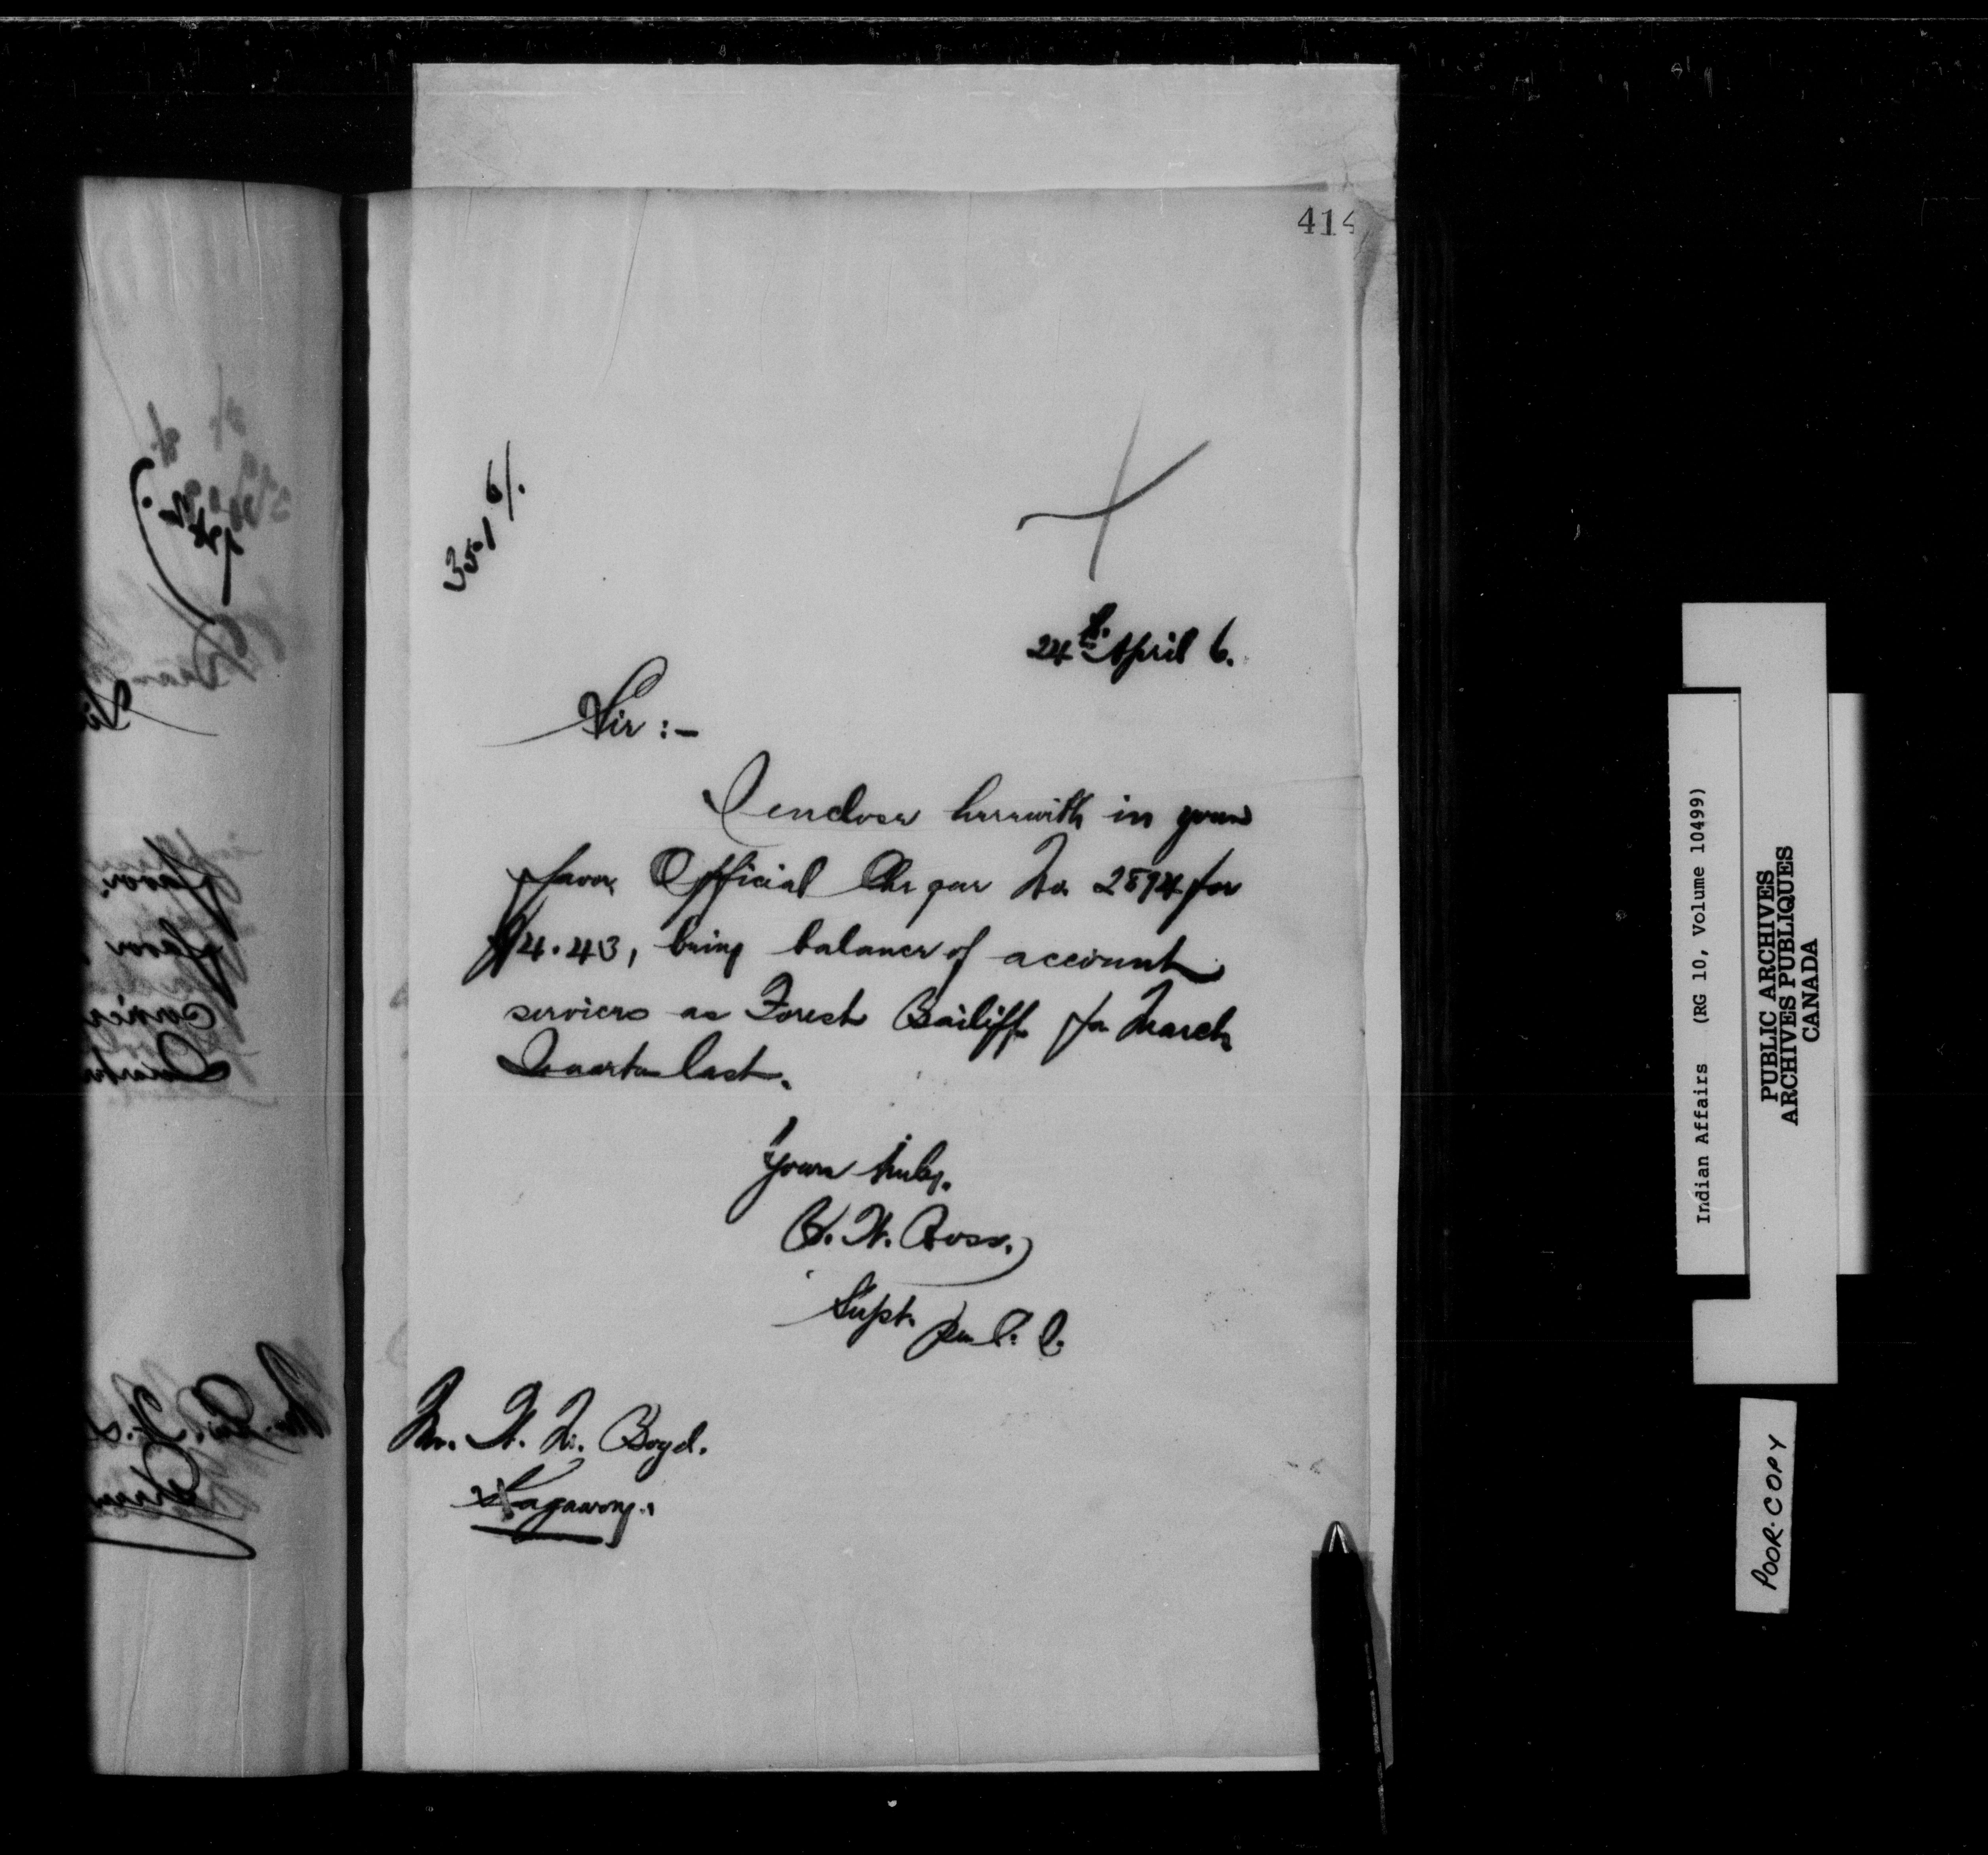 414
351 6/.
24th April 6.
Sir :-
I enclose herewith in your
favor Official Cheque No 2894 for
$4.43, being balance of account
services as Forest Bailiff for March
Quarter last.
Yours truly.
Ross.
Supt.
per
Mr. W. Boyd.
Kagawong.
Indian Affairs (RG 10, Volume 10499)
PUBLIC ARCHIVES
ARCHIVES PUBLIQUES
CANADA
POOR·COPY